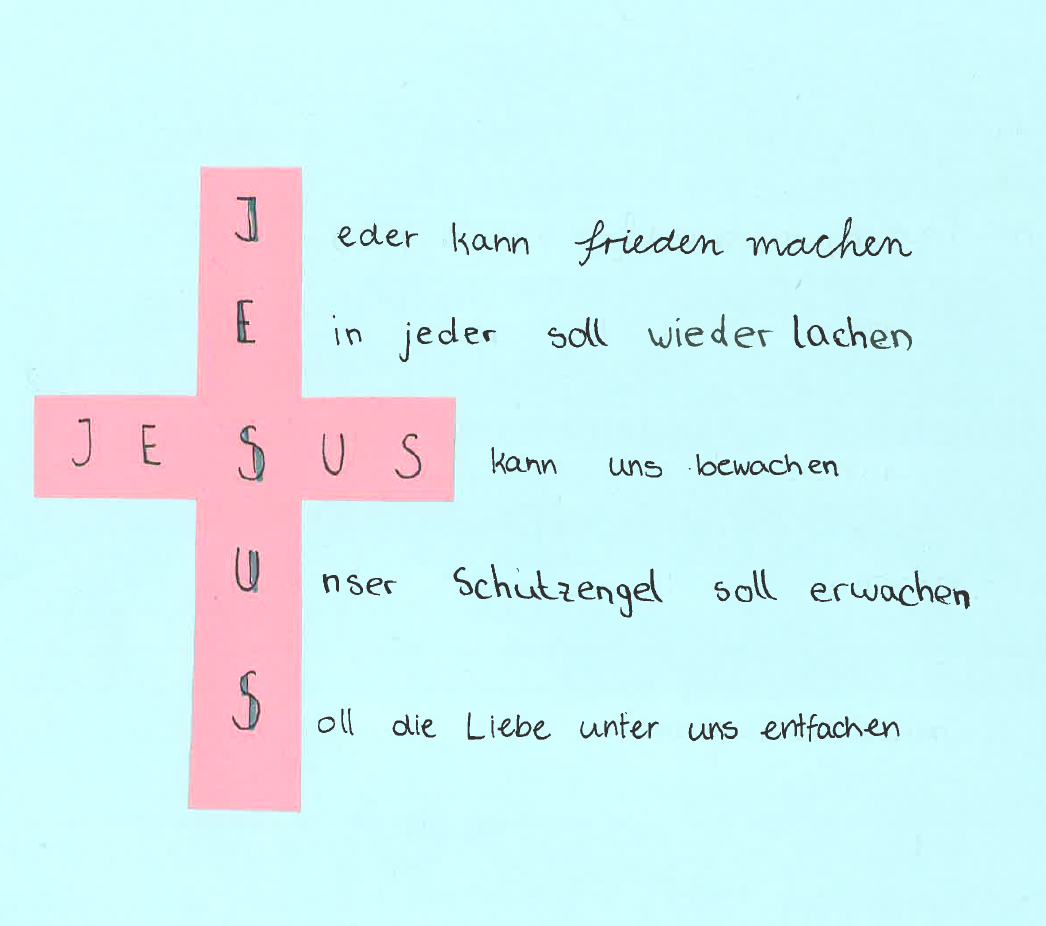 Jeder kann frieden machen
Ein jeder soll wieder lachen
JESUS kann uns bewachen
Unser Schutzengel soll erwachen
Soll die Liebe unter uns entfachen